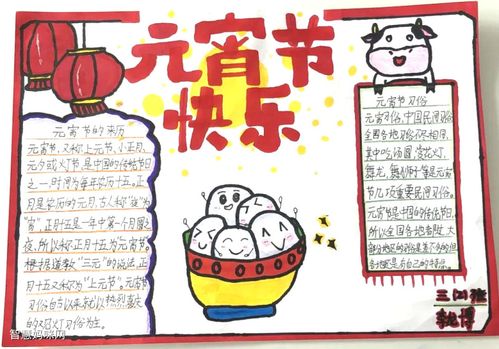 元宵节
快乐
元宵节的来历
元宵节,又称上元节、小正月、
元夕或灯节,是中国的传统节日
之一,时间为每年农历十五。正
月是农历的元月,古人称"夜"为
"宵",正月十五是一年中第一个月圆之
夜,所以称正月十五为元宵节。
根据道教"三元"的说法,正
月十五又称为"上元节"。元宵节
习俗自古以来就以热烈喜庆
的观灯习俗为主。
元宵节习俗
元宵习俗,中国民间习俗,
全国各地习俗不尽相同,
其中吃汤圆、赏花灯、
舞龙、舞狮子等是元宵
节几项重要民间习俗。
元宵节是中国的传统节日,
所以全国各地都过,大
部分地区的习俗是差不多的,但
各地还是有自己的特点。
三(2)班
博
智慧妈咪网